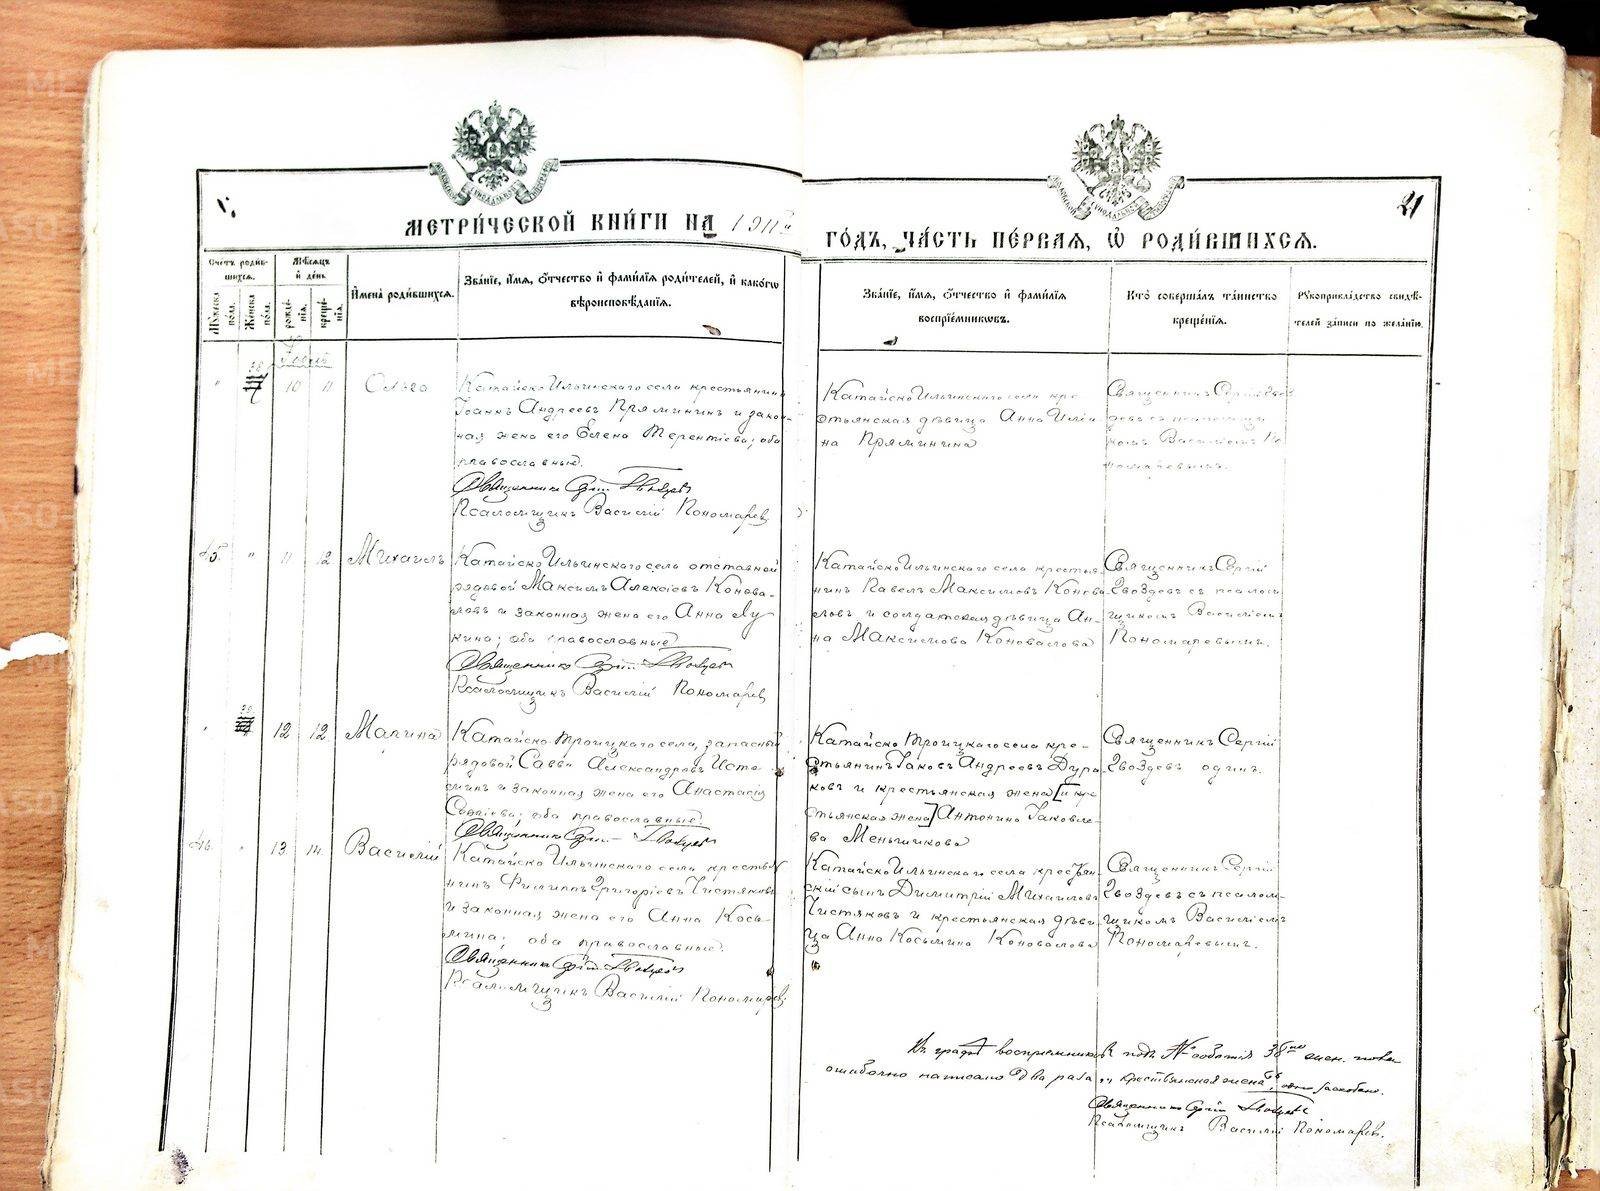 МЕТРИ́ЧЕСКОЙ КНИ́ГИ НА 1911й
ГО́ДЪ, ЧА́СТЬ ПЕ́РВАЯ, Ѡ҆ РОДИ́ВШИХСЯ.
21
Сче́тъ роди́в-
шихся.
Му́жеска по́ла.
Же́нска по́ла.
Мѣ́сяцъ и҆ де́нь
рожде́-
нїя.
креще́-
нїя.
И҆мена̀ роди́вшихся.
Зва́нїе, и҆́мя, ѻ҆́тчество и҆ фами́лїя роди́телей, и҆ како́гѡ
вѣроисповѣ́данїя.
Зва́нїе, и҆́мя, ѻ҆́тчество и҆ фами́лїя
воспрїе́мниковъ.
Кто̀ соверша́лъ та́инство
креще́нїя.
Рукоприкла́дство свидѣ́-
телей за́писи по жела́нїю.
" 10 11 Ольга
Катайско Ильинскаго села крестьянинъ
Іоаннъ Андреевъ Пряминин и закон-
ная жена его Елена Терентіева; оба
православные.
Священникъ Сергій Гвоздевъ
Псаломщикъ Василій Пономарев
Катайско Ильинскаго села кре-
стьянская дѣвица Анна
на Прямінина
Священникъ Сергій Гвоз-
девъ съ псаломщи-
комъ Василіемъ По-
номаревымъ.
45. " 11 12 Михаилъ
Катайско Ильинскаго села отставной
рядовой Максимъ Алексіевъ Конова-
ловъ и законная жена его Анна Лу
кина; оба православные
Священникъ Сергій Гвоздевъ
Псаломщикъ Василій Пономарев
Катайско Ильинскаго села крестья-
нинъ Павелъ Максимовъ Конова-
ловъ и солдатская дѣвица Ан-
на Максимова Коновалова
Священникъ Сергій
Гвоздевъ съ псалом-
щикомъ Василіемъ
Пономаревымъ.
" 12 12 Марина
Катайско Троицкаго села, запасный
рядовой Савва Александровъ Исто-
минъ и законная жена его Анастасія
оба православные.
Священникъ Сергій Гвоздевъ
Катайско Троицкаго села кре-
стьянинъ Іаковъ Андреевъ Дура-
ковъ и крестьянская жена [и кре
стьянская жена] Антонина Іаковле-
ва Меньшикова
Священникъ Сергій
Гвоздевъ одинъ.
46. " 13. 14. Василій
Катайско Ильинскаго села крестья-
нинъ Филиппъ Григоріевъ Чистяковъ
и законная жена его Анна Косьмина; оба православные.
Священникъ Сергій Гвоздевъ
Псаломщикъ Василій Пономарев
Катайско Ильинскаго села крестьян-
скій сынъ Димитрій Михаиловъ
Чистяковъ и крестьянская дѣви-
ца Анна Косьмина Коновалова
Священникъ Сергій
Гвоздевъ съ псалом-
щикомъ Василіемъ
Пономаревымъ.
Въ графѣ воспріемниковъ подъ № событія 38мъ женск. пола
ошибочно написано два раза „крестьянская жена“, одно заскоблено.
Священникъ Сергій Гвоздевъ
Псаломщикъ Василій Пономарев.